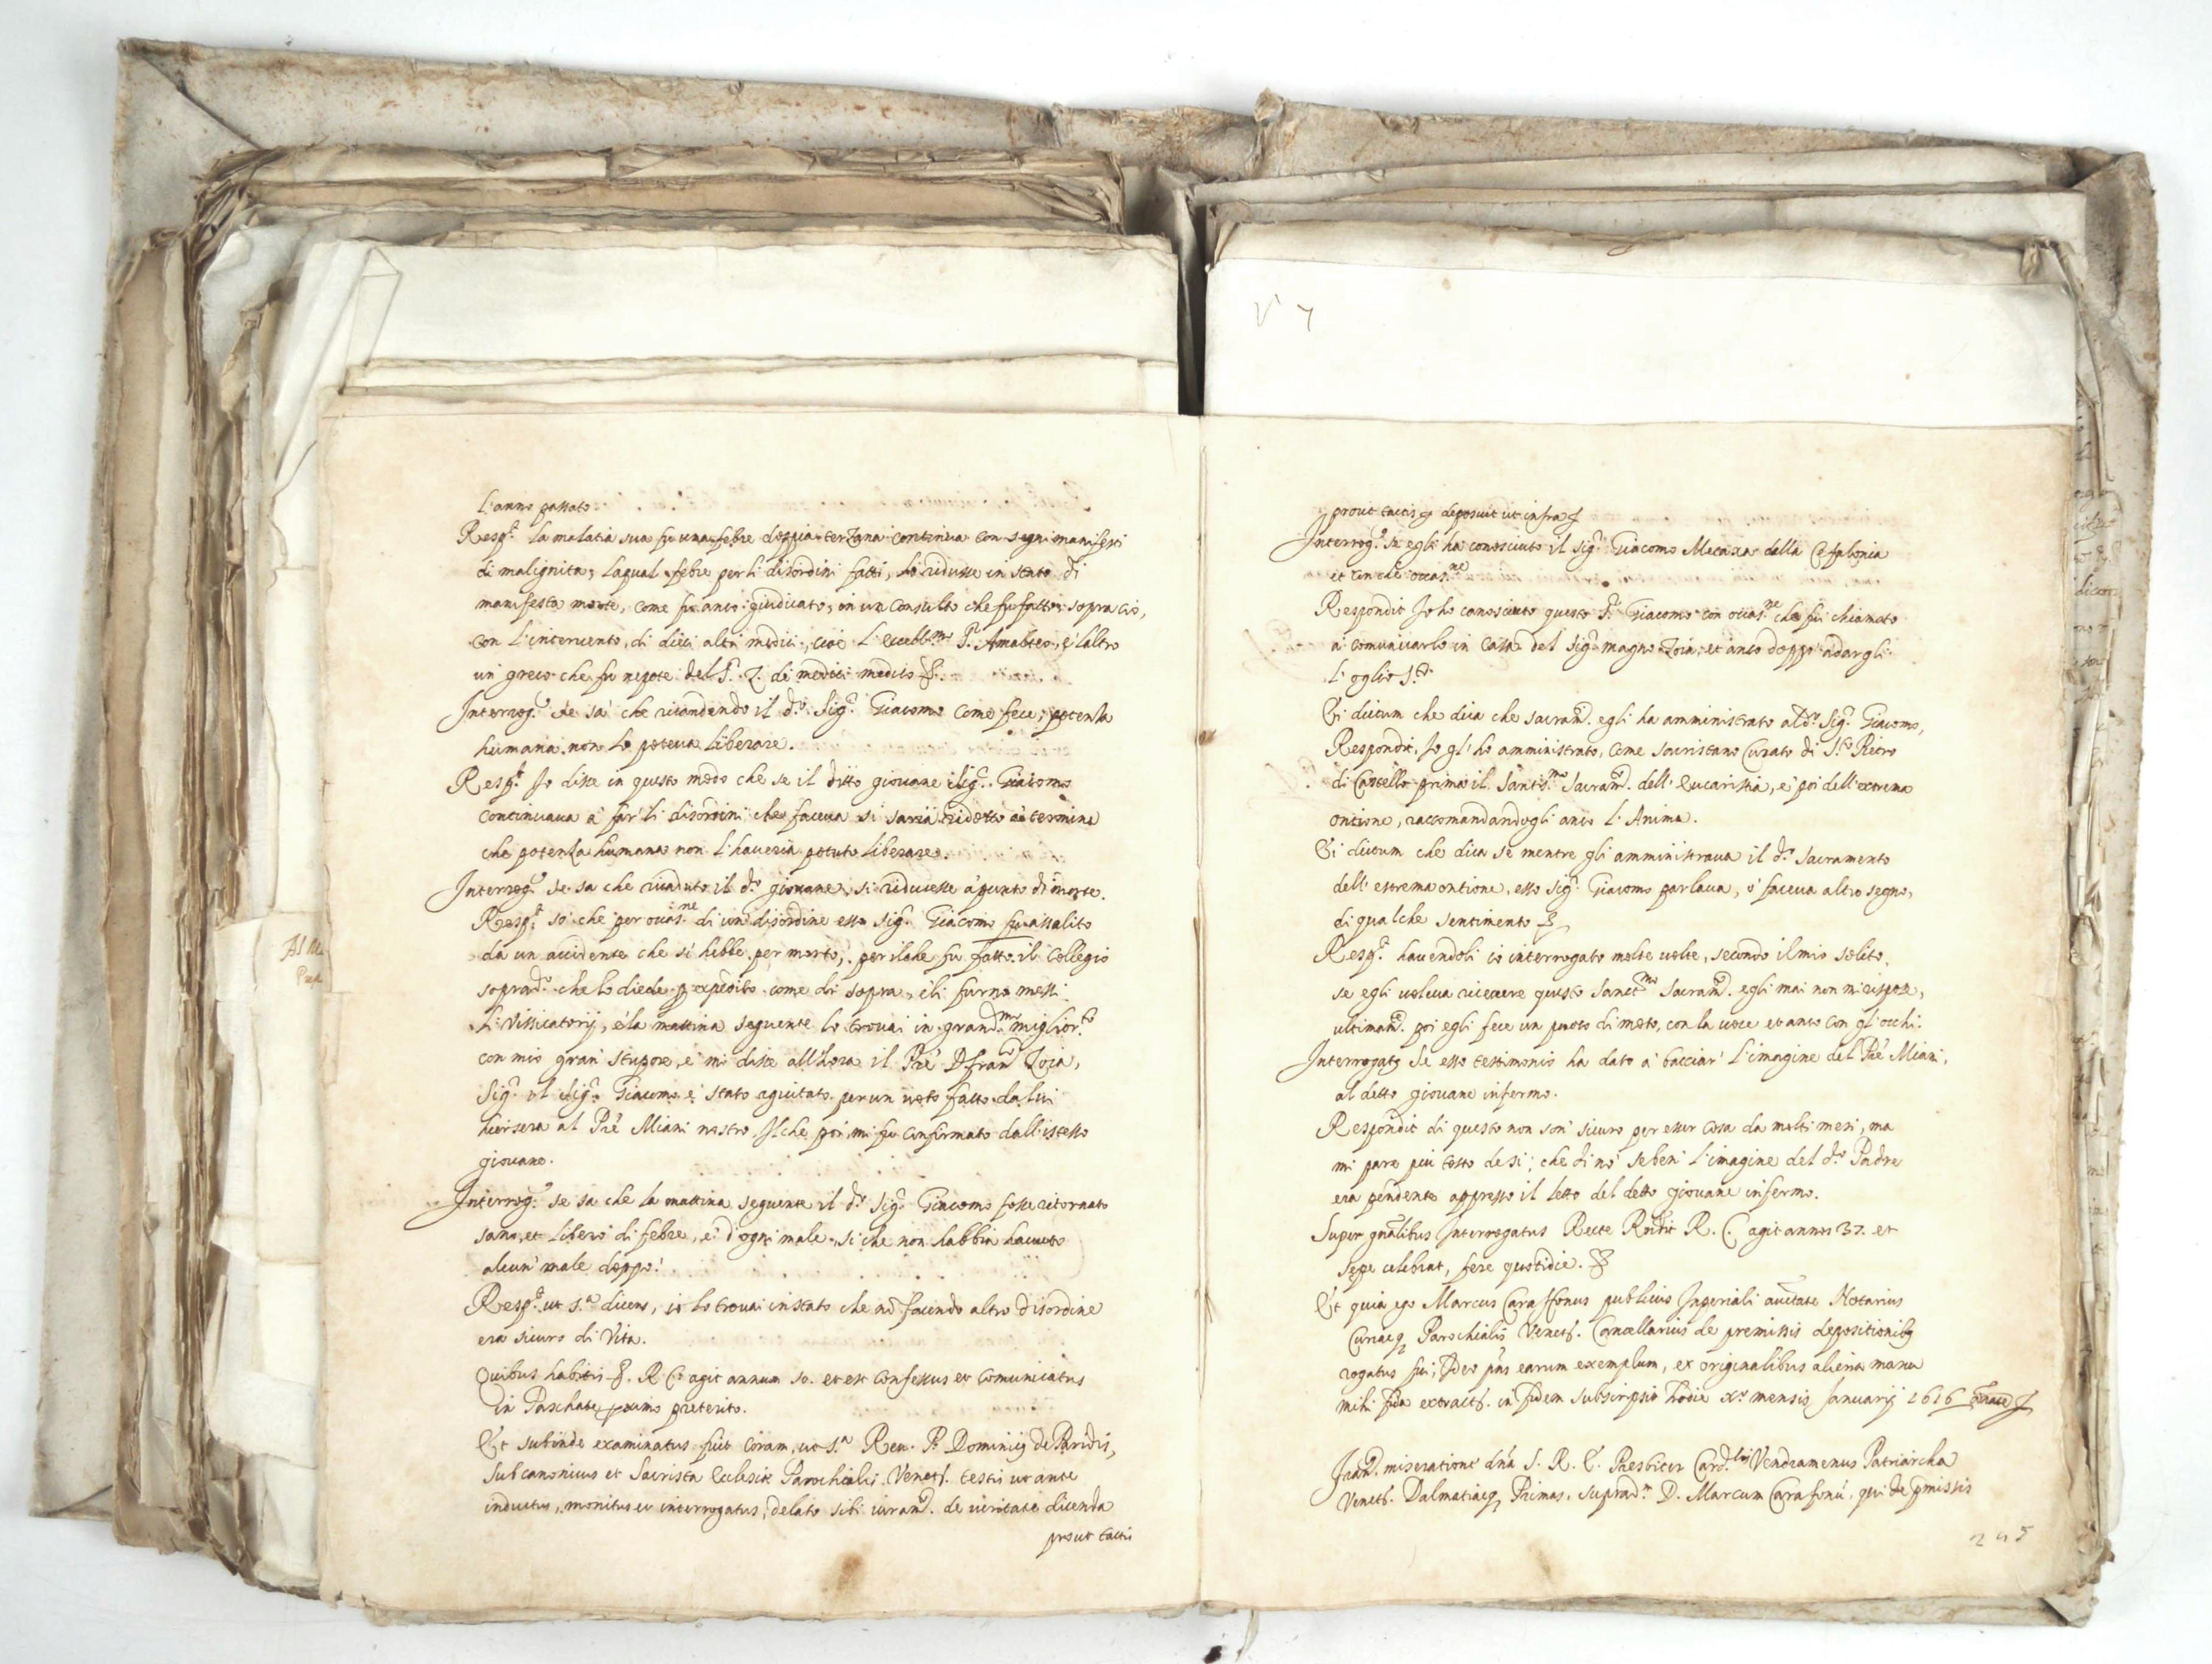 L'anno passato
Resp.t la malatia sua fu una febre doppia terzana continua con segni manifesti
di malignita, laqual febre per li disordini fatti, lo ridusse in stato di
manifesta morte, come fu anco giudicato, in un consulto che fu fatto sopra ciò,
con l'intervento, di dieci altri medici, cioè l'eccell.mo S.r Amalteo, e l'altro
un greco che fu nepote del S.r Z. di medici medico &.
Interrog.o se sà che ricadendo il d.o Sig.r Giacomo come fece, potenza
humana non lo poteva liberare.
Resp.t Io disse in questo modo che se il ditto giovane Sig.r Giacomo
continuava a far li disordini che faceva si saria ridotto a termine
che potenza humana non l'haveria potuto liberare.
Interrog.o se sa che ricaduto il d.o giovane si riducesse a punto di morte.
Resp.t sò che per occas.ne di un disordine esso Sig.r Giacomo fu assalito
da un accidente che si hebbe per morto, per ilche fu fatto il Collegio
soprad.o che lo diede p expedito come di sopra, e li furno messi
li Vissicatorij, e la mattina seguente lo trovai in grand.mo miglior.to
con mio gran stupore, e mi disse all'hora il Prè D fran.co Zoia,
Sig.r il Sig.r Giacomo è stato agiutato per un voto fatto da lui
hiersera al Prè Miani nostro. Ilche poi mi fu confirmato dall'istesso
giovane.
Interrog.o se sa che la mattina seguente il d.o Sig.r Giacomo fosse ritornato
sano, et libero di febre, e d'ogni male, si che non habbia havuto
alcun male doppo.
Resp.t ut s.a dicens, io lo trovai in stato che nō facendo altro disordine
era sicuro di Vita.
Quibus habitis &. R. C. agit annum 50. et est confessus et comunicatus
in Paschate proximo preterito.
Et subinde examinatus fuit coram, ut s.a Rev. P. Dominicus de Paridis,
Subcanonicus et Sacrista Ecclesie Parochialis Venet. testis ut ante
inductus, monitus et interrogatus, delato sibi iuram.to de veritate dicenda
prout tactis
prout tactis & deposuit ut infra
Interrog.s se egli ha conosciuto il sig.r Giacomo Metaxa della Cefalonia
et con che occas.ne
Respondit Io ho conosciuto questo S.r Giacomo con occas.ne che fui chiamato
a comunicarlo in Casa del Sig.r magno Zoia, et anco doppo a dargli
l'oglio S.to
Ei dictum che dica che sacram.to egli ha amministrato al d.o Sig.r Giacomo,
Respondit, Io gl'ho amministrato, come Sacristano Curato di S.to Pietro
di Castello prima il Santis.mo Sacram.to dell'Eucaristia, e poi dell'extrema
ontione, raccomandandogli anco l'Anima.
Ei dictum che dica se mentre gli amministrava il d.o Sacramento
dell'estrema ontione, esso Sig.r Giacomo parlava, o faceva altro segno,
di qualche sentimento &
Resp.t havendoli io interrogato molte volte, secondo il mio solito,
se egli voleva ricevere questo Sanct.mo Sacram.to egli mai non mi rispose,
ultimam.te poi egli fece un puoco di moto, con la voce et anco con gl'occhi.
Interrogatus Se esso testimonio ha dato a bacciar l'imagine del Prè Miani,
al detto giovane infermo.
Respondit di questo non son sicuro per esser cosa da molti mesi, ma
mi pare più tosto de si, che di nò seben l'imagine del d.o Padre
era pendente appresso il letto del detto giovane infermo.
Super gnālibus Interrogatus Recte Rñdit R. C. agit annos 37. et
sepe celebrat, fere quotidie. &
Et quia ego Marcus Caraffonus publicus Imperiali auctate Notarius
Curiaeq Parochialis Venet. Cancellarius de premissis depositionibus
rogatus fui, Ideo pns earum exemplum, ex originalibus aliena manu
mihi fida extract. in fidem subscripsi hodie x.o mensis Januarij 1616
Fran.s miseratione dnā S. R. E. Presbiter Card.lis Vendramenus Patriarcha
Venet. Dalmatiaeq Primas, suprad.m D. Marcum Carafonū, qui de pmissis
245